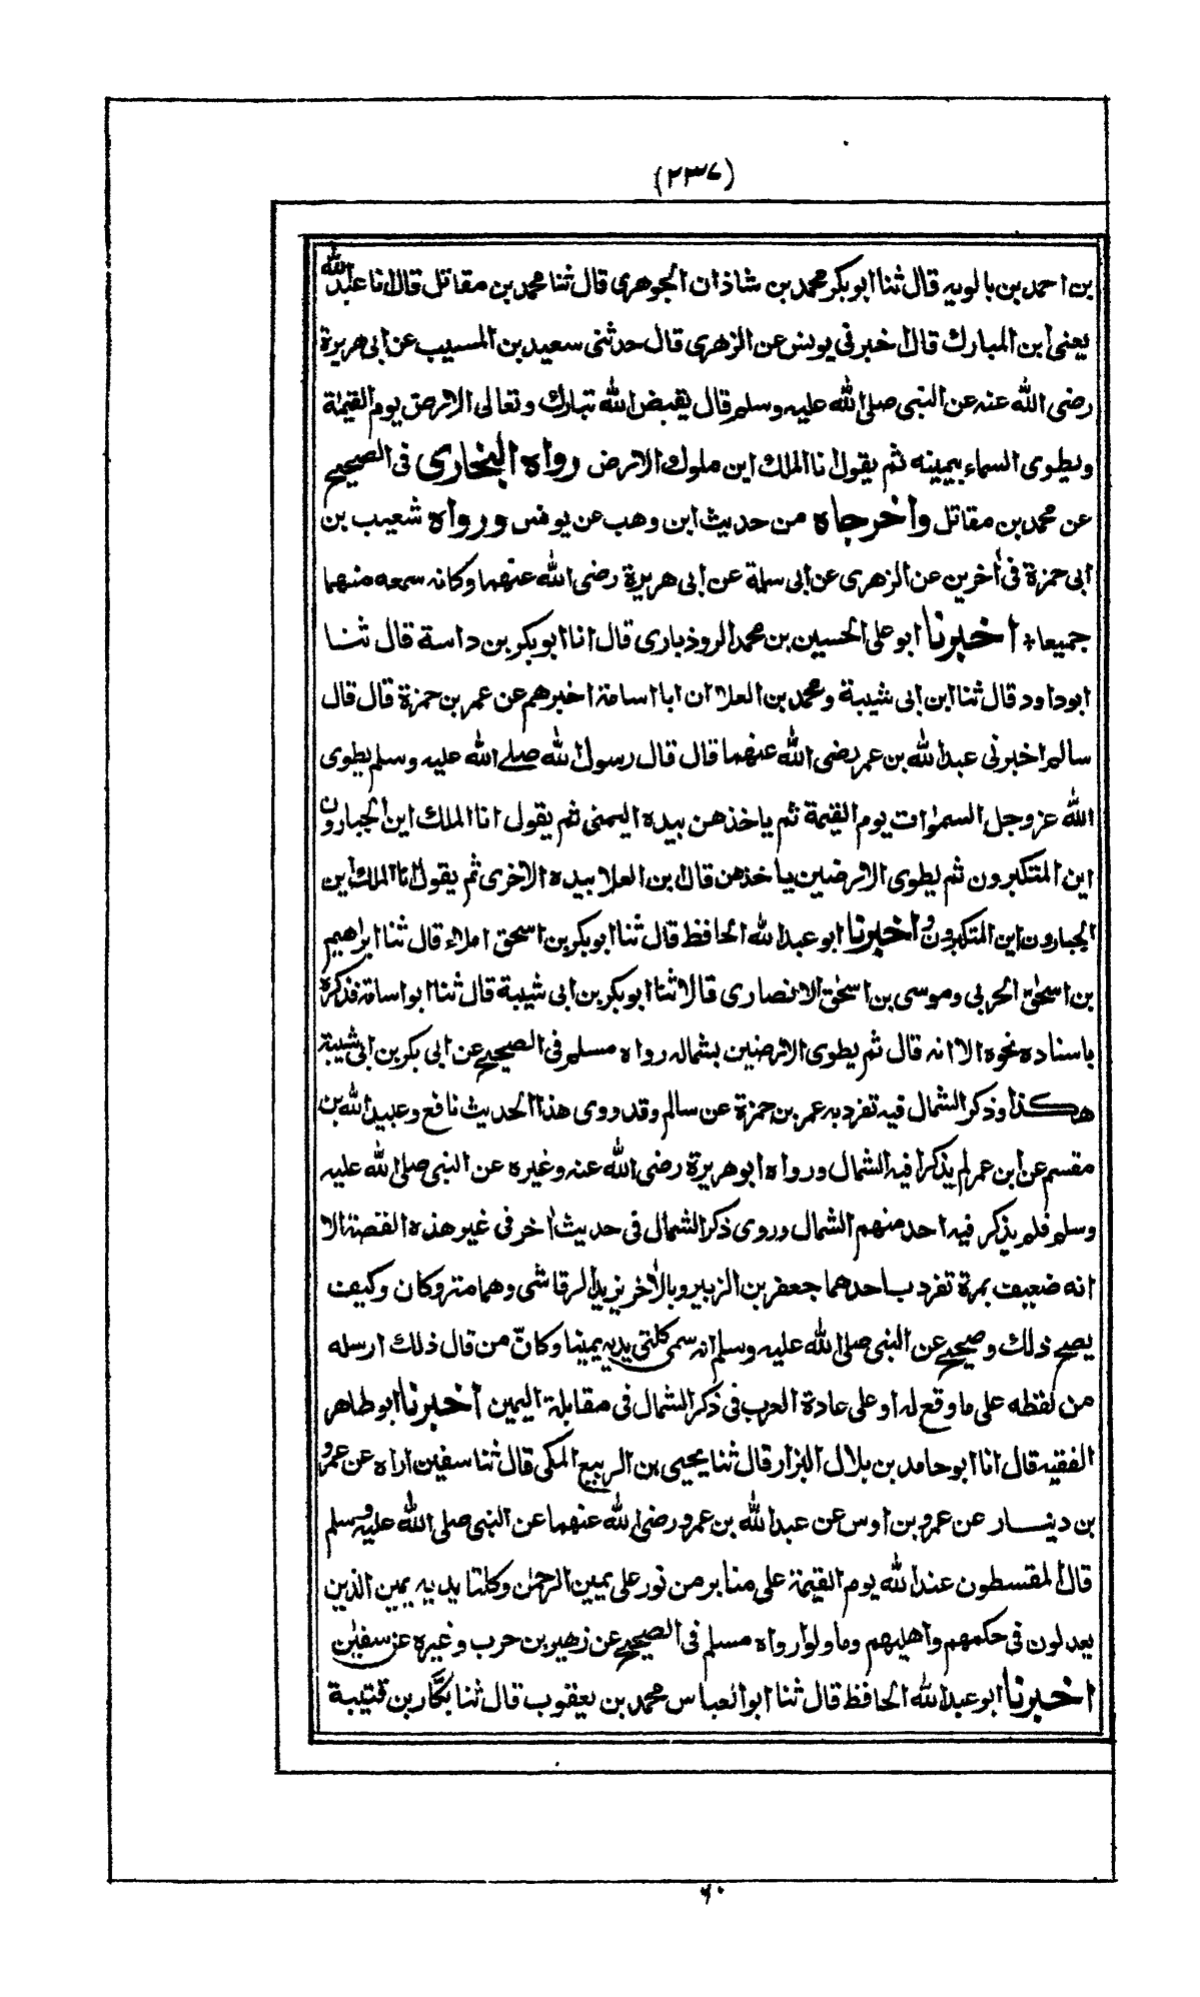 (٢٣٧)
بن احمد بن بالويه قال ثنا ابو بكر محمد بن شاذان الجوهرى قال ثنا محمد بن مقاتل قال انا عبدالله
يعنى ابن المبارك قال اخبرنى يونس عن الزهرى قال حدثنى سعيد بن المسيب عن ابى هريرة
رضى الله عنه عن النبى صلى الله عليه وسلم قال يقبض الله تبارك وتعالى الارض يوم القيمة
ويطوى السماء بيمينه ثم يقول انا الملك اين ملوك الارض رواه البخارى فى الصحيح
عن محمد بن مقاتل واخرجاه من حديث ابن وهب عن يونس ورواه شعيب بن
ابى حمزة فى اٰخرين عن الزهرى عن ابى سلمة عن ابى هريرة رضى الله عنهما وكانه سمعه منهما
جميعا* اخبرنا ابو على الحسين بن محمد الروذبارى قال انا ابو بكر بن داسة قال ثنا
ابو داود قال ثنا ابن ابى شيبة ومحمد بن العلا ان ابا اسامة اخبرهم عن عمر بن حمزة قال قال
سالم اخبرنى عبد الله بن عمر رضى الله عنهما قال قال رسول الله صلے الله عليه وسلم يطوى
الله عز وجل السمٰوات يوم القيمة ثم ياخذهن بيده اليمنى ثم يقول انا الملك اين الجبارون
اين المتكبرون ثم يطوى الارضين ياخذهن قال ابن العلا بيده الاخرى ثم يقول انا الملك اين
الجبارون اين المتكبرون واخبرنا ابو عبد الله الحافظ قال ثنا ابو بكر بن اسحق املاء قال ثنا ابراهيم
بن اسحٰق الحربى وموسى بن اسحٰق الانصارى قالا ثنا ابو بكر بن ابى شيبة قال ثنا ابو اسامة فذكره
باسناده نحوه الا انه قال ثم يطوى الارضين بشماله رواه مسلم فى الصحيح عن ابى بكر بن ابى شيبة
هكذا وذكر الشمال فيه تفرد به عمر بن حمزة عن سالم وقد روى هذا الحديث نافع وعبيد الله بن
مقسم عن ابن عمر لم يذكرا فيه الشمال ورواه ابو هريرة رضى الله عنه وغيره عن النبى صلى الله عليه
وسلم فلم يذكر فيه احد منهم الشمال وروى ذكر الشمال فى حديث اٰخر فى غير هذه القصة الا
انه ضعيف بمرة تفرد باحدهما جعفر بن الزبير وبالاٰخر يزيد الرقاشى وهما متروكان وكيف
يصح ذلك وصحيح عن النبى صلى الله عليه وسلم انه سمى كلتى يديه يمينا وكانّ من قال ذلك ارسله
من لفظه على ما وقع له او على عادة العرب فى ذكر الشمال فى مقابلة اليمين اخبرنا ابو طاهر
الفقيه قال انا ابو حامد بن بلال البزار قال ثنا يحيى بن الربيع المكى قال ثنا سفين اراه عن عمرو
بن دينار عن عمرو بن اوس عن عبد الله بن عمرو رضى الله عنهما عن النبى صلى الله عليه وسلم
قال المقسطون عند الله يوم القيمة على منابر من نور على يمين الرحمٰن وكلتا يديه يمين الذين
يعدلون فى حكمهم واهليهم وما ولوا رواه مسلم فى الصحيح عن زهير بن حرب وغيره عن سفين
اخبرنا ابو عبد الله الحافظ قال ثنا ابو العباس محمد بن يعقوب قال ثنا بكّار بن قتيبة